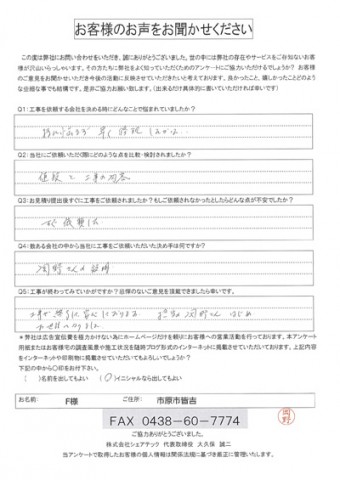 お客様のお声をお聞かせください
この度は弊社にお問い合わせをいただき、誠にありがとうございました。世の中には弊社の存在やサービスをご存知ないお客
様が沢山いらっしゃいます。その方たちに弊社をよく知っていただくためのアンケートにご協力いただけるでしょうか? お客様
のご意見をお聞かせいただき今後の活動に反映させていただきたいと考えております。良かったこと、嬉しかったことどのよう
な些細な事でも結構です。是非ご協力お願い致します。(出来るだけ具体的に書いていただければ幸いです)
Q1:工事を依頼する会社を決める時にどんなことで悩まれていましたか?
Q2:当社にご依頼いただく際にどのような点を比較・検討されましたか?
値段と工事の内容
Q3:お見積り提出後すぐに工事をご依頼されましたか?もしご依頼されなかったとしたらどんな点が不安でしたか?
Q4:数ある会社の中から当社に工事をご依頼いただいた決め手は何ですか?
岡野さんの説明
Q5:工事が終わってみていかがですか?忌憚のないご意見を頂戴できましたら幸いです。
*弊社は広告宣伝費を極力かけない為にホームページだけを頼りにお客様への営業活動を行っております。本アンケート
用紙またはお客様宅の調査風景や施工状況を随時ブログ形式のインターネットに掲載させていただいております。上記内容
をインターネットや印刷物に掲載させていただいてもよろしいでしょうか?
下記の中から〇印をお付け下さい。
( )名前を出してもよい (〇)イニシャルなら出してもよい
お名前: F様 ご住所 市原市皆吉
FAX 0438-60-7774
岡野
ご協力ありがとうございました。
株式会社シェアテック 代表取締役 大久保 誠二
当アンケートで取得したお客様の個人情報は関係法規に基づき厳正に管理いたします。